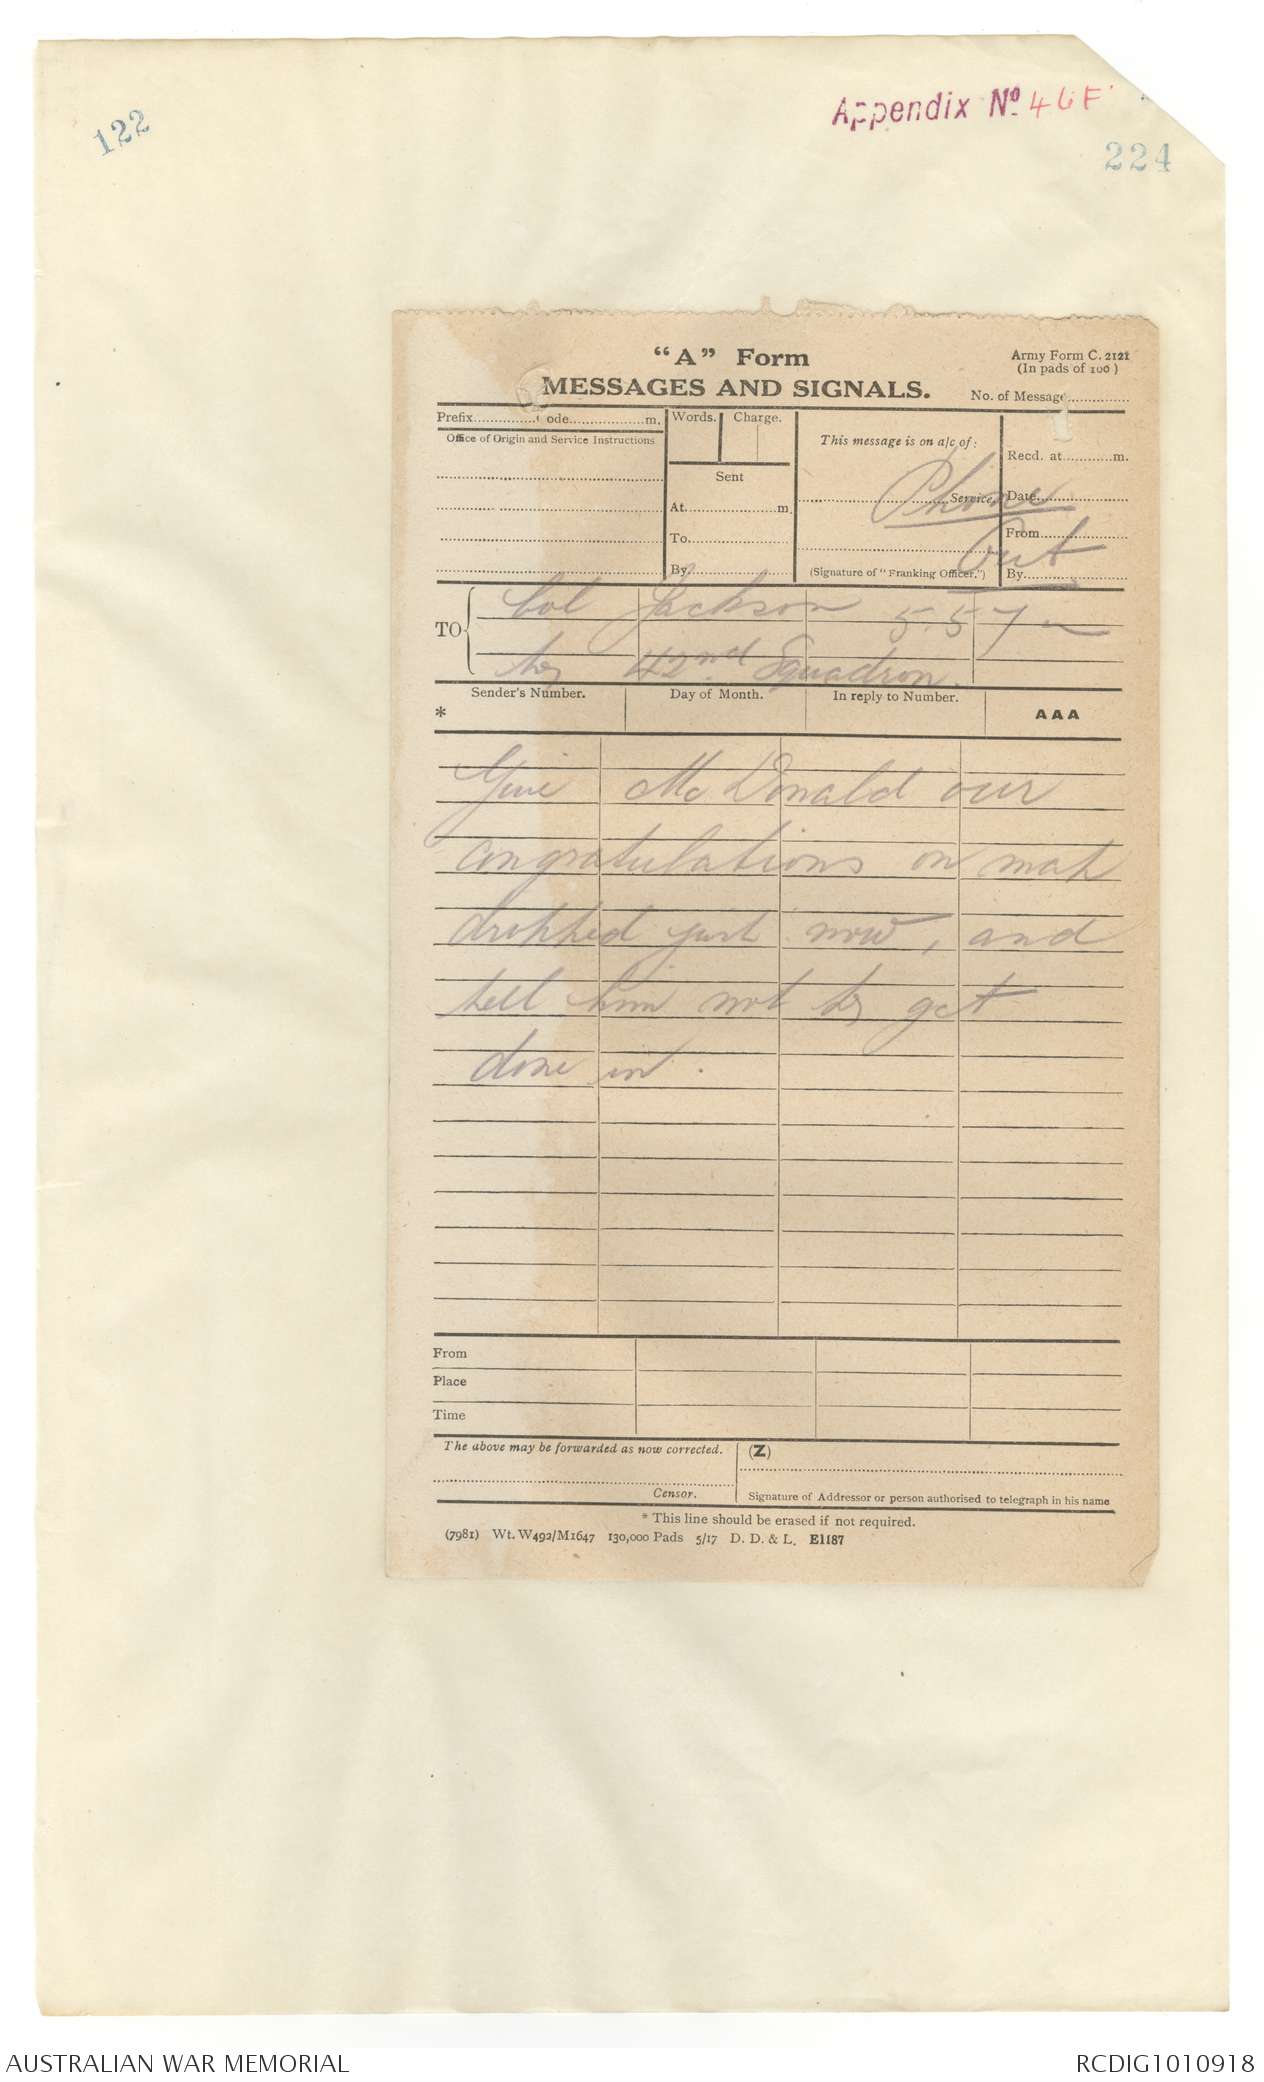 122
Appendix No. 46F
224
"A" Form
MESSAGES AND SIGNALS.
Army Form C. 2121
(In pads of 100)
No. of Message
Prefix Code m.
Words. Charge.
This message is on a/c of:
Recd. at m.
Office of Origin and Service Instructions
Sent
At m.
To
By
Phone
Out
Service.
(Signature of "Franking Officer.")
Date
From
By
TO
Col Jackson 5.57
to 42nd Squadron.
Sender's Number.
Day of Month.
In reply to Number.
* AAA
Give McDonald our
congratulations on map
dropped just now, and
tell him not to get
done in.
From
Place
Time
The above may be forwarded as now corrected.
(Z)
Censor.
Signature of Addressor or person authorised to telegraph in his name
* This line should be erased if not required.
(7981) Wt. W492/M1647 130,000 Pads 5/17 D. D. & L. E1187
AUSTRALIAN WAR MEMORIAL
RCDIG1010918